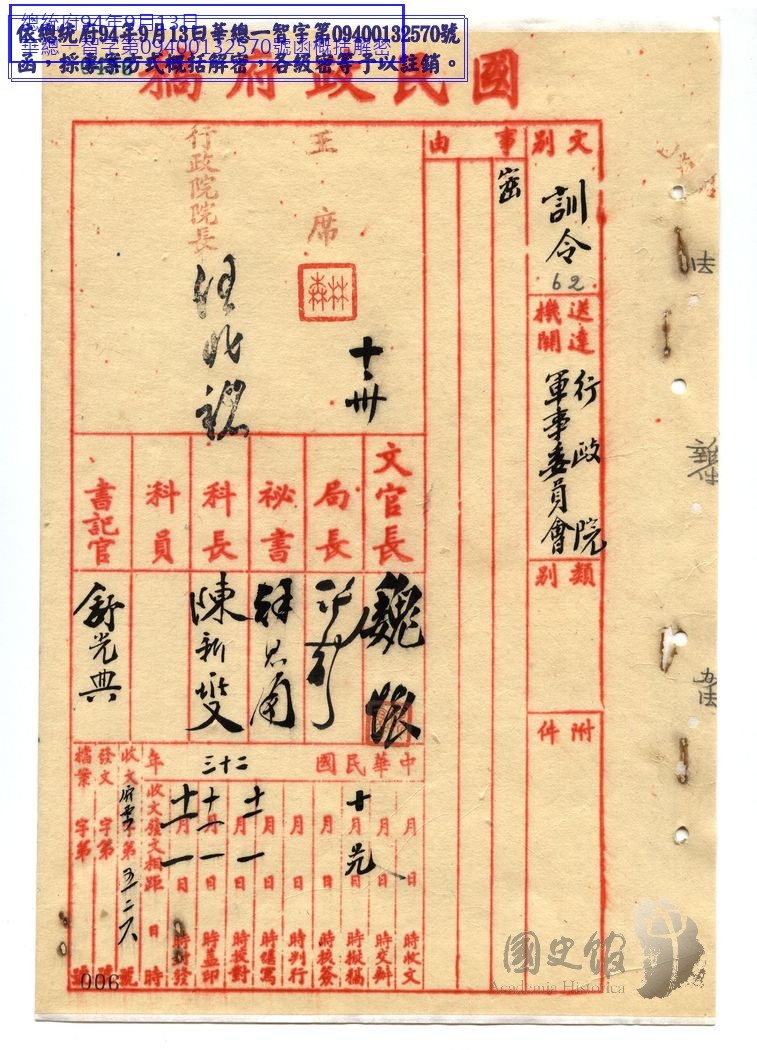 總統府94年9月13日
華總一智字第09400132570號函概括解密
依總統府94年9月13日華總一智字第09400132570號
函，採專案方式概括解密，各級密等予以註銷。
國民政府稿
文別
訓令
62
送達機關
行政院
軍事委員會
類別
附件
事由
密
主席
林森
十、卅
行政院院長
汪兆銘
文官長
魏懷
局長
祕書
科長
陳新燮
科員
書記官
舒光典
中華民國二十三年
月 日 時收文
月 日 時交辦
十月 日 時擬稿
月 日 時核簽
月 日 時判行
月 日 時繕寫
十一月一日 時校對
十一月一日 時蓋印
十一月一日 時封發
收文發文相距 日 時
收文 字第 號
發文 字第 號
檔案 字第 號
006
國史館
Academia Historica